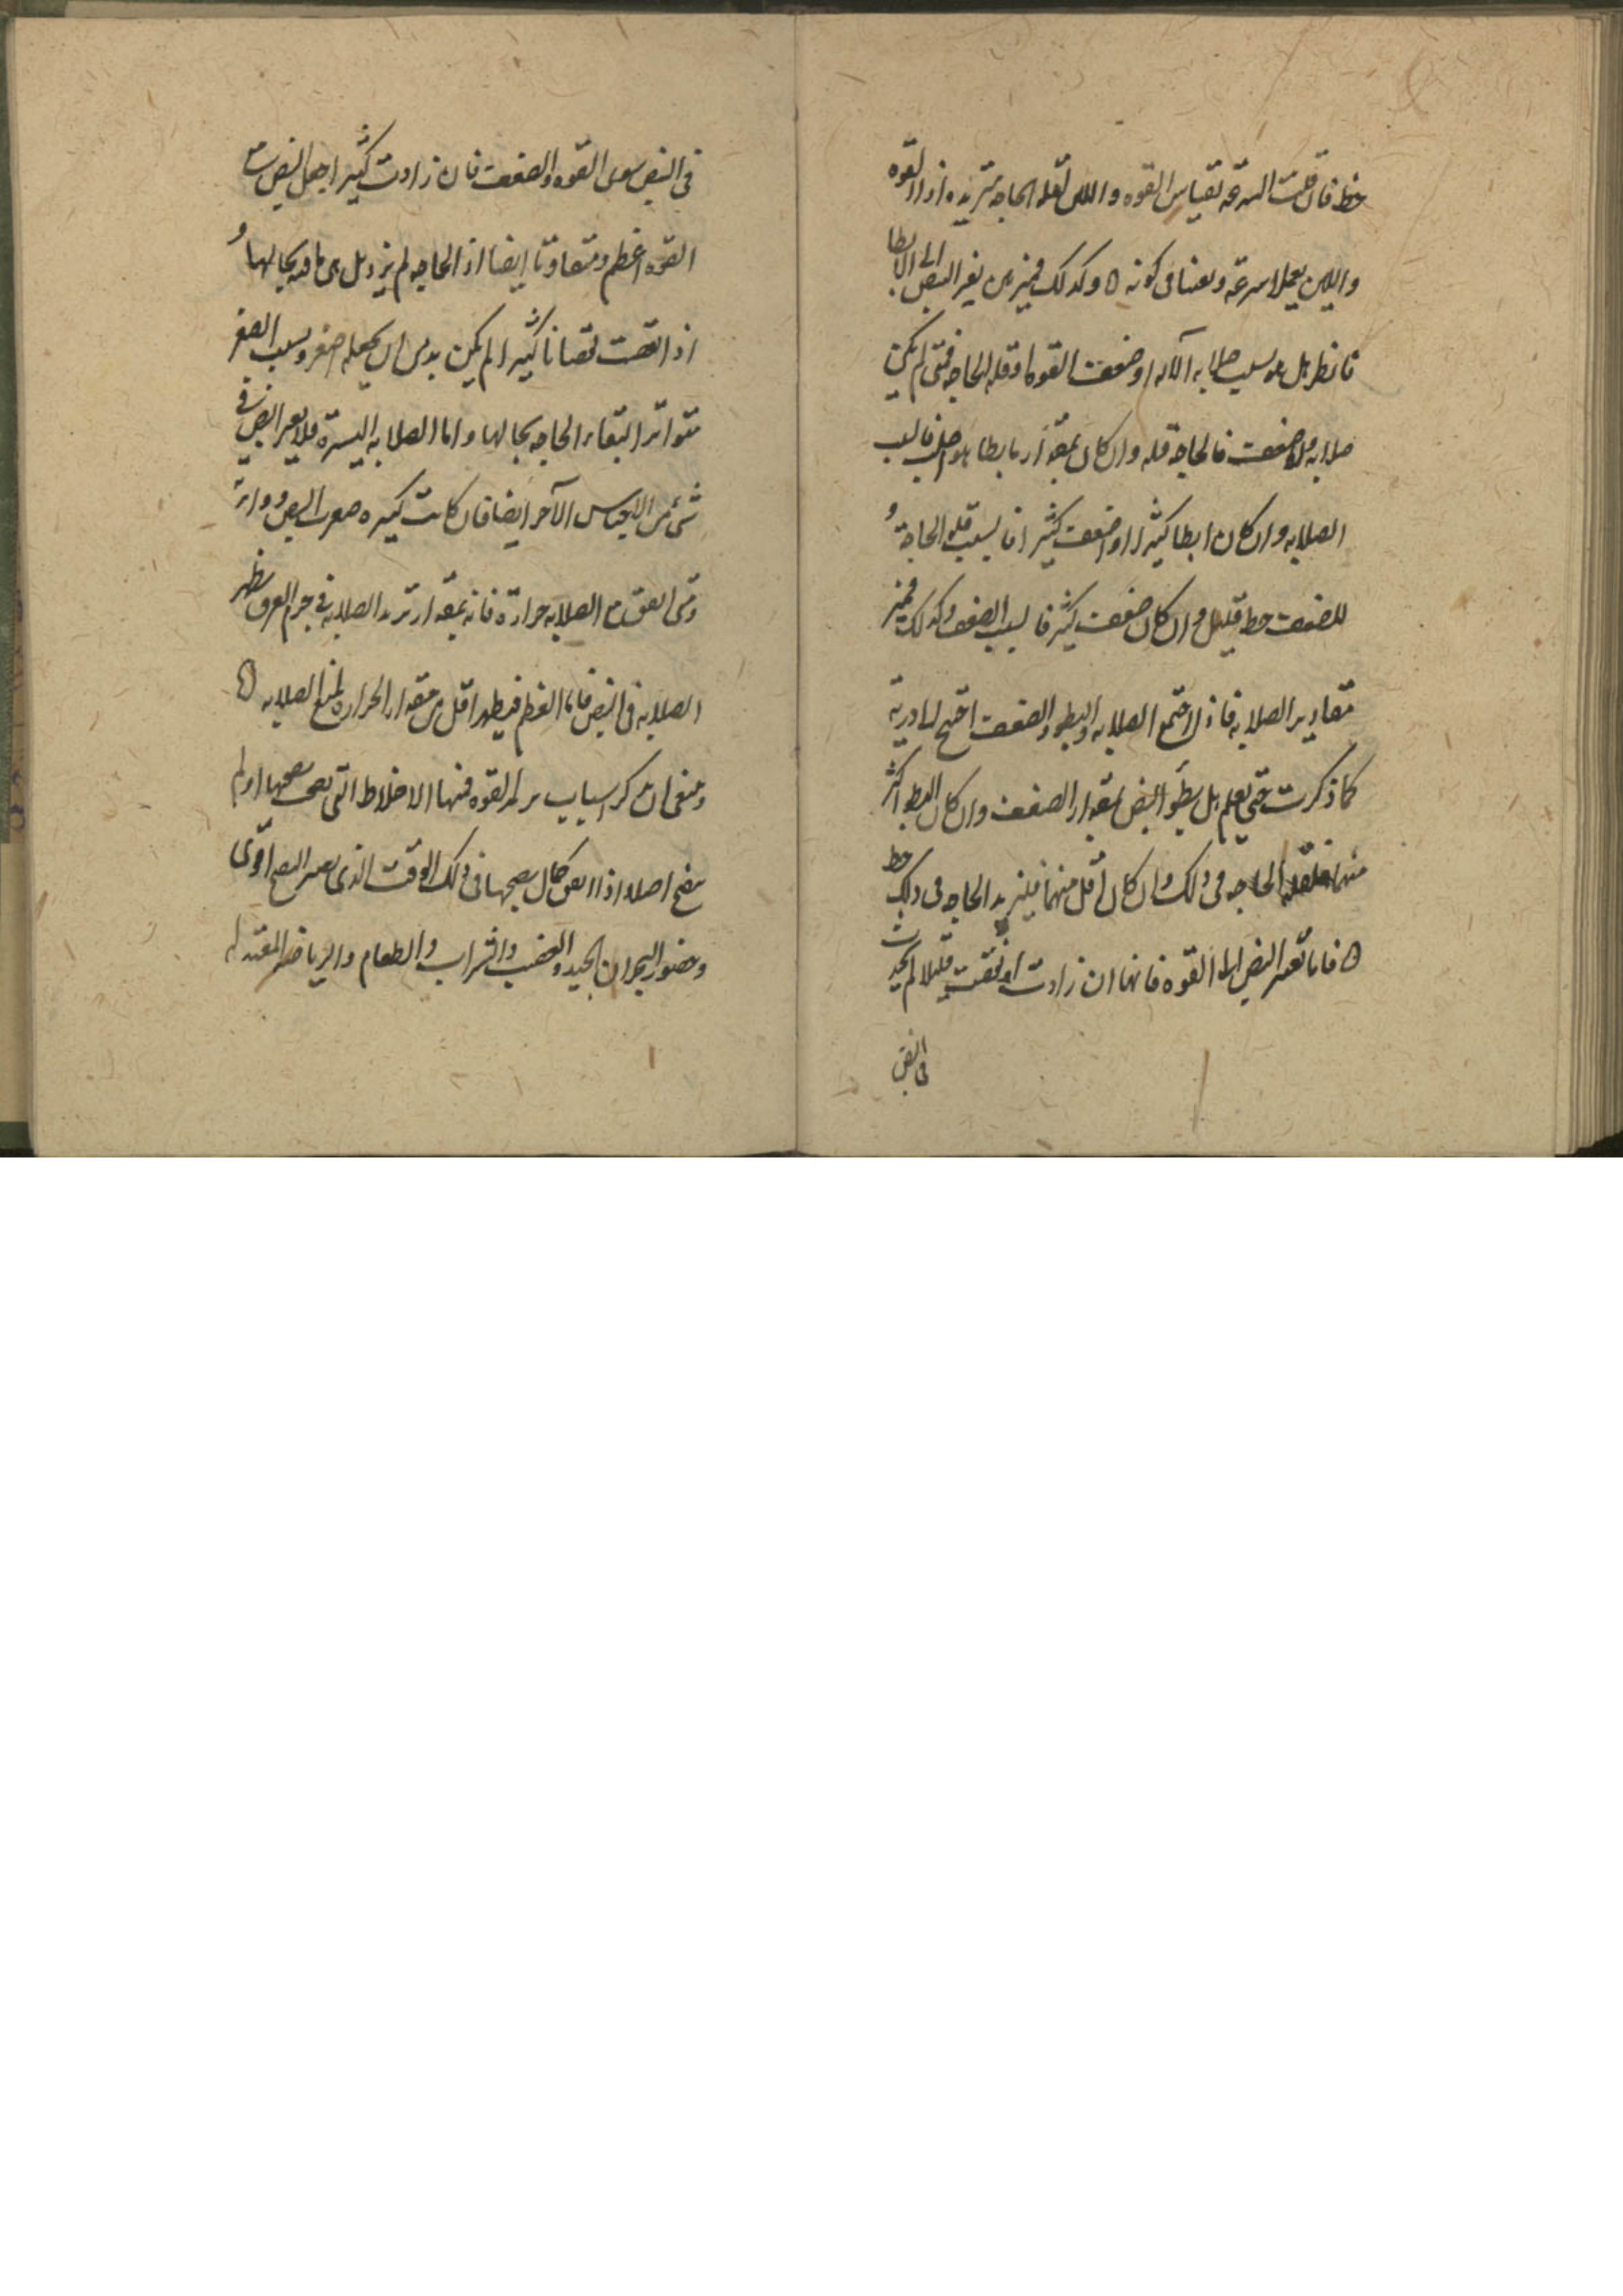 حظ فان قلت السرعة بقياس القوه واللين لقلة الحاجه تزيده اذ القوه
واللين يعملا سرعته ويعينا فى كونه ه وكذلك فميز من تغير النبض الى الابطا
فانظر هل هو بسبب صلابه الآله او ضعف القوه او قله الحاجه فمتى لم يكن
صلابه ولا ضعف فالحاجة قله وان كان بمقدار ما بطا هو صلب فالسبب
الصلابه وان كان ابطا كثيرا او اضعف كثيرا فالسبب قله الحاجة و
للضعف حظ قليل وان كان ضعف كثير فالسبب الضعف وكذلك فميز
مقادير الصلابه فاذا اجتمع الصلابه والبطو والضعف احتج لمادرية
كما ذكرت حتى تعلم هل بطو النبض بمقدار الضعف وان كان البطو اكثر
منهما فلقله الحاجه فى ذلك وان كان اقل منهما فليزيد الحاجه فى ذلك حظ
ه فاما تغير النبض لها القوه فانها ان زادت او نقصت قليلا لم يحدث
فى النبض
فى النبض سوى القوه والضعف فان زادت كثيرا جعل النبض مت
القوه اعظم ومتفاوتا ايضا اذ الحاجه لم يزد بل هى باقيه بحالها و
اذا نقصت نقصانا كثيرا لم يكن بد من ان يجعله اصغر وبسبب الصغر
متواترا لبقاء الحاجه بحالها واما الصلابه اليسيرة فلا يغير النبض فى
شئ من الاجناس الآخر ايضا فان كانت كثيره صغرت النبض وواتر
ومتى اتفق مع الصلابه حرارة فانه بمقدار تزيد الصلابه فى جرم العرق يظهر
الصلابه فى النبض فاما العظم فيظهر اقل من مقدار الحراره لمنع الصلابه ه
وينبغى ان نذكر اسباب تزيد القوه فمنها الاخلاط التى نضجها او لم
ينضج اصلا اذا اتفق كمال نضجها فى ذلك الوقت الذى يصير النبض اقوى
وحضور البحران الجيد والغضب والشراب والطعام والرياضه المعتدله